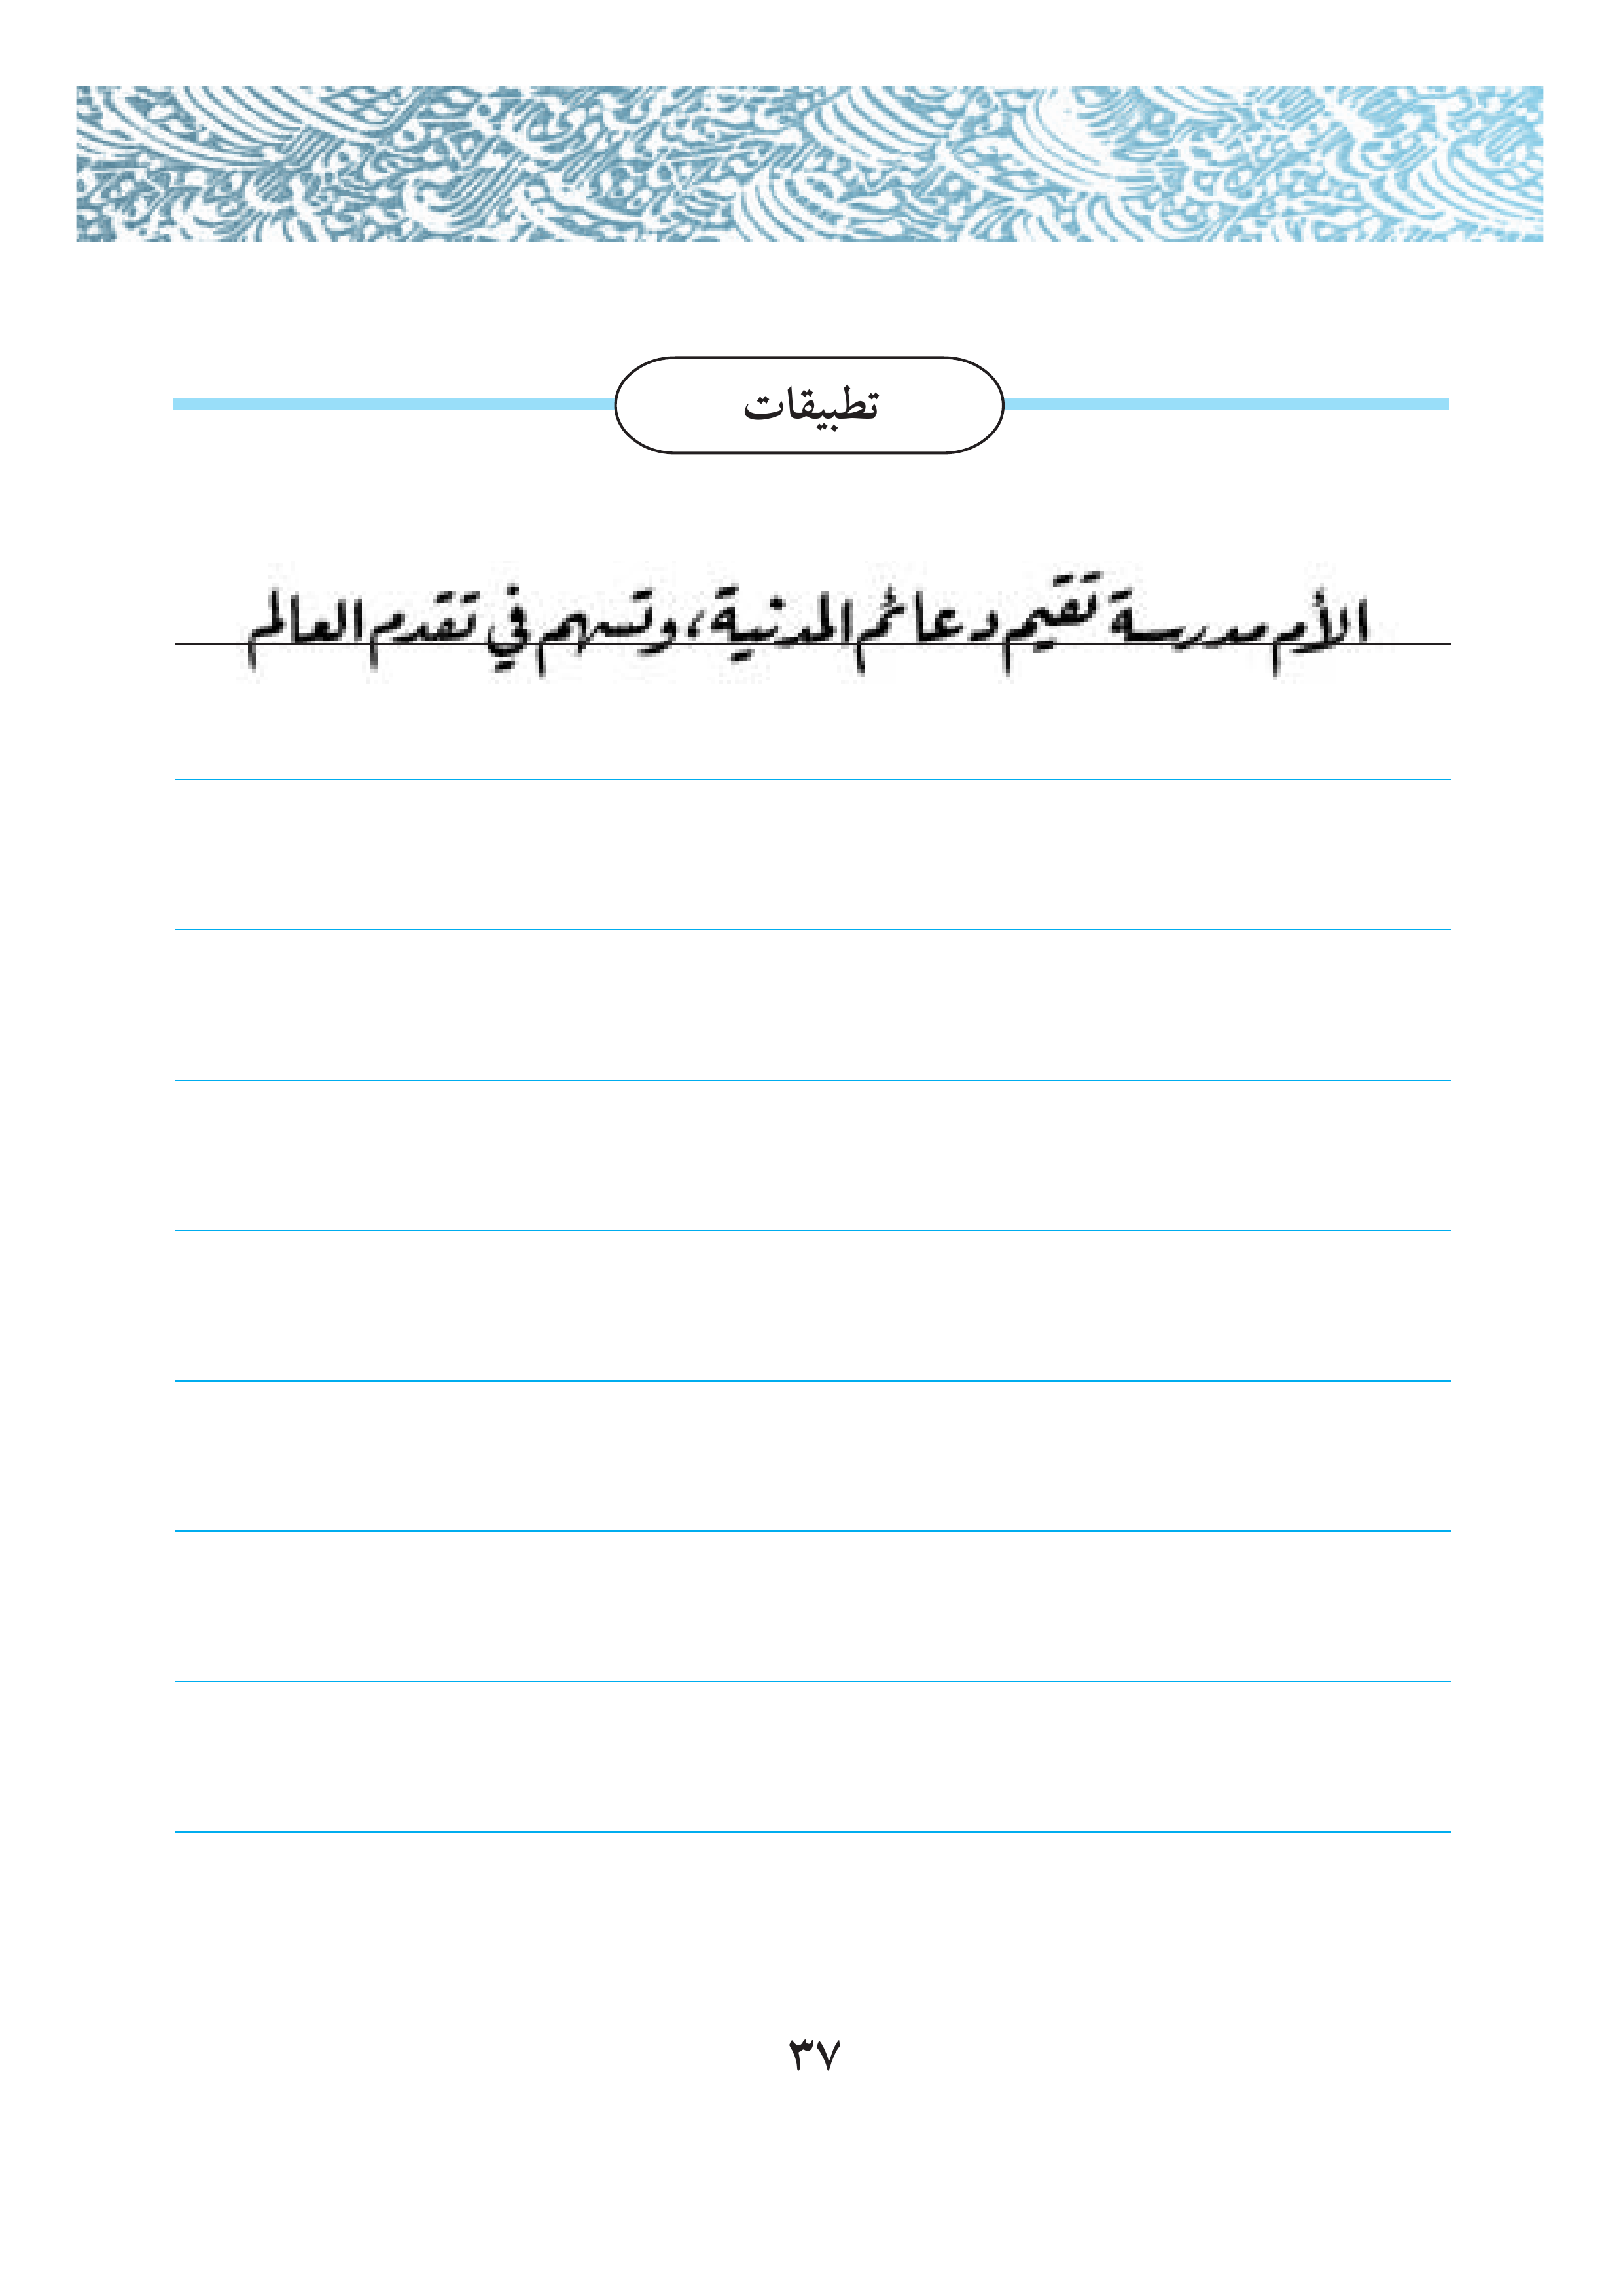 تطبيقات
الأم مدرسة تقيم دعائم المدنية، وتسهم في تقدم العالم
٣٧